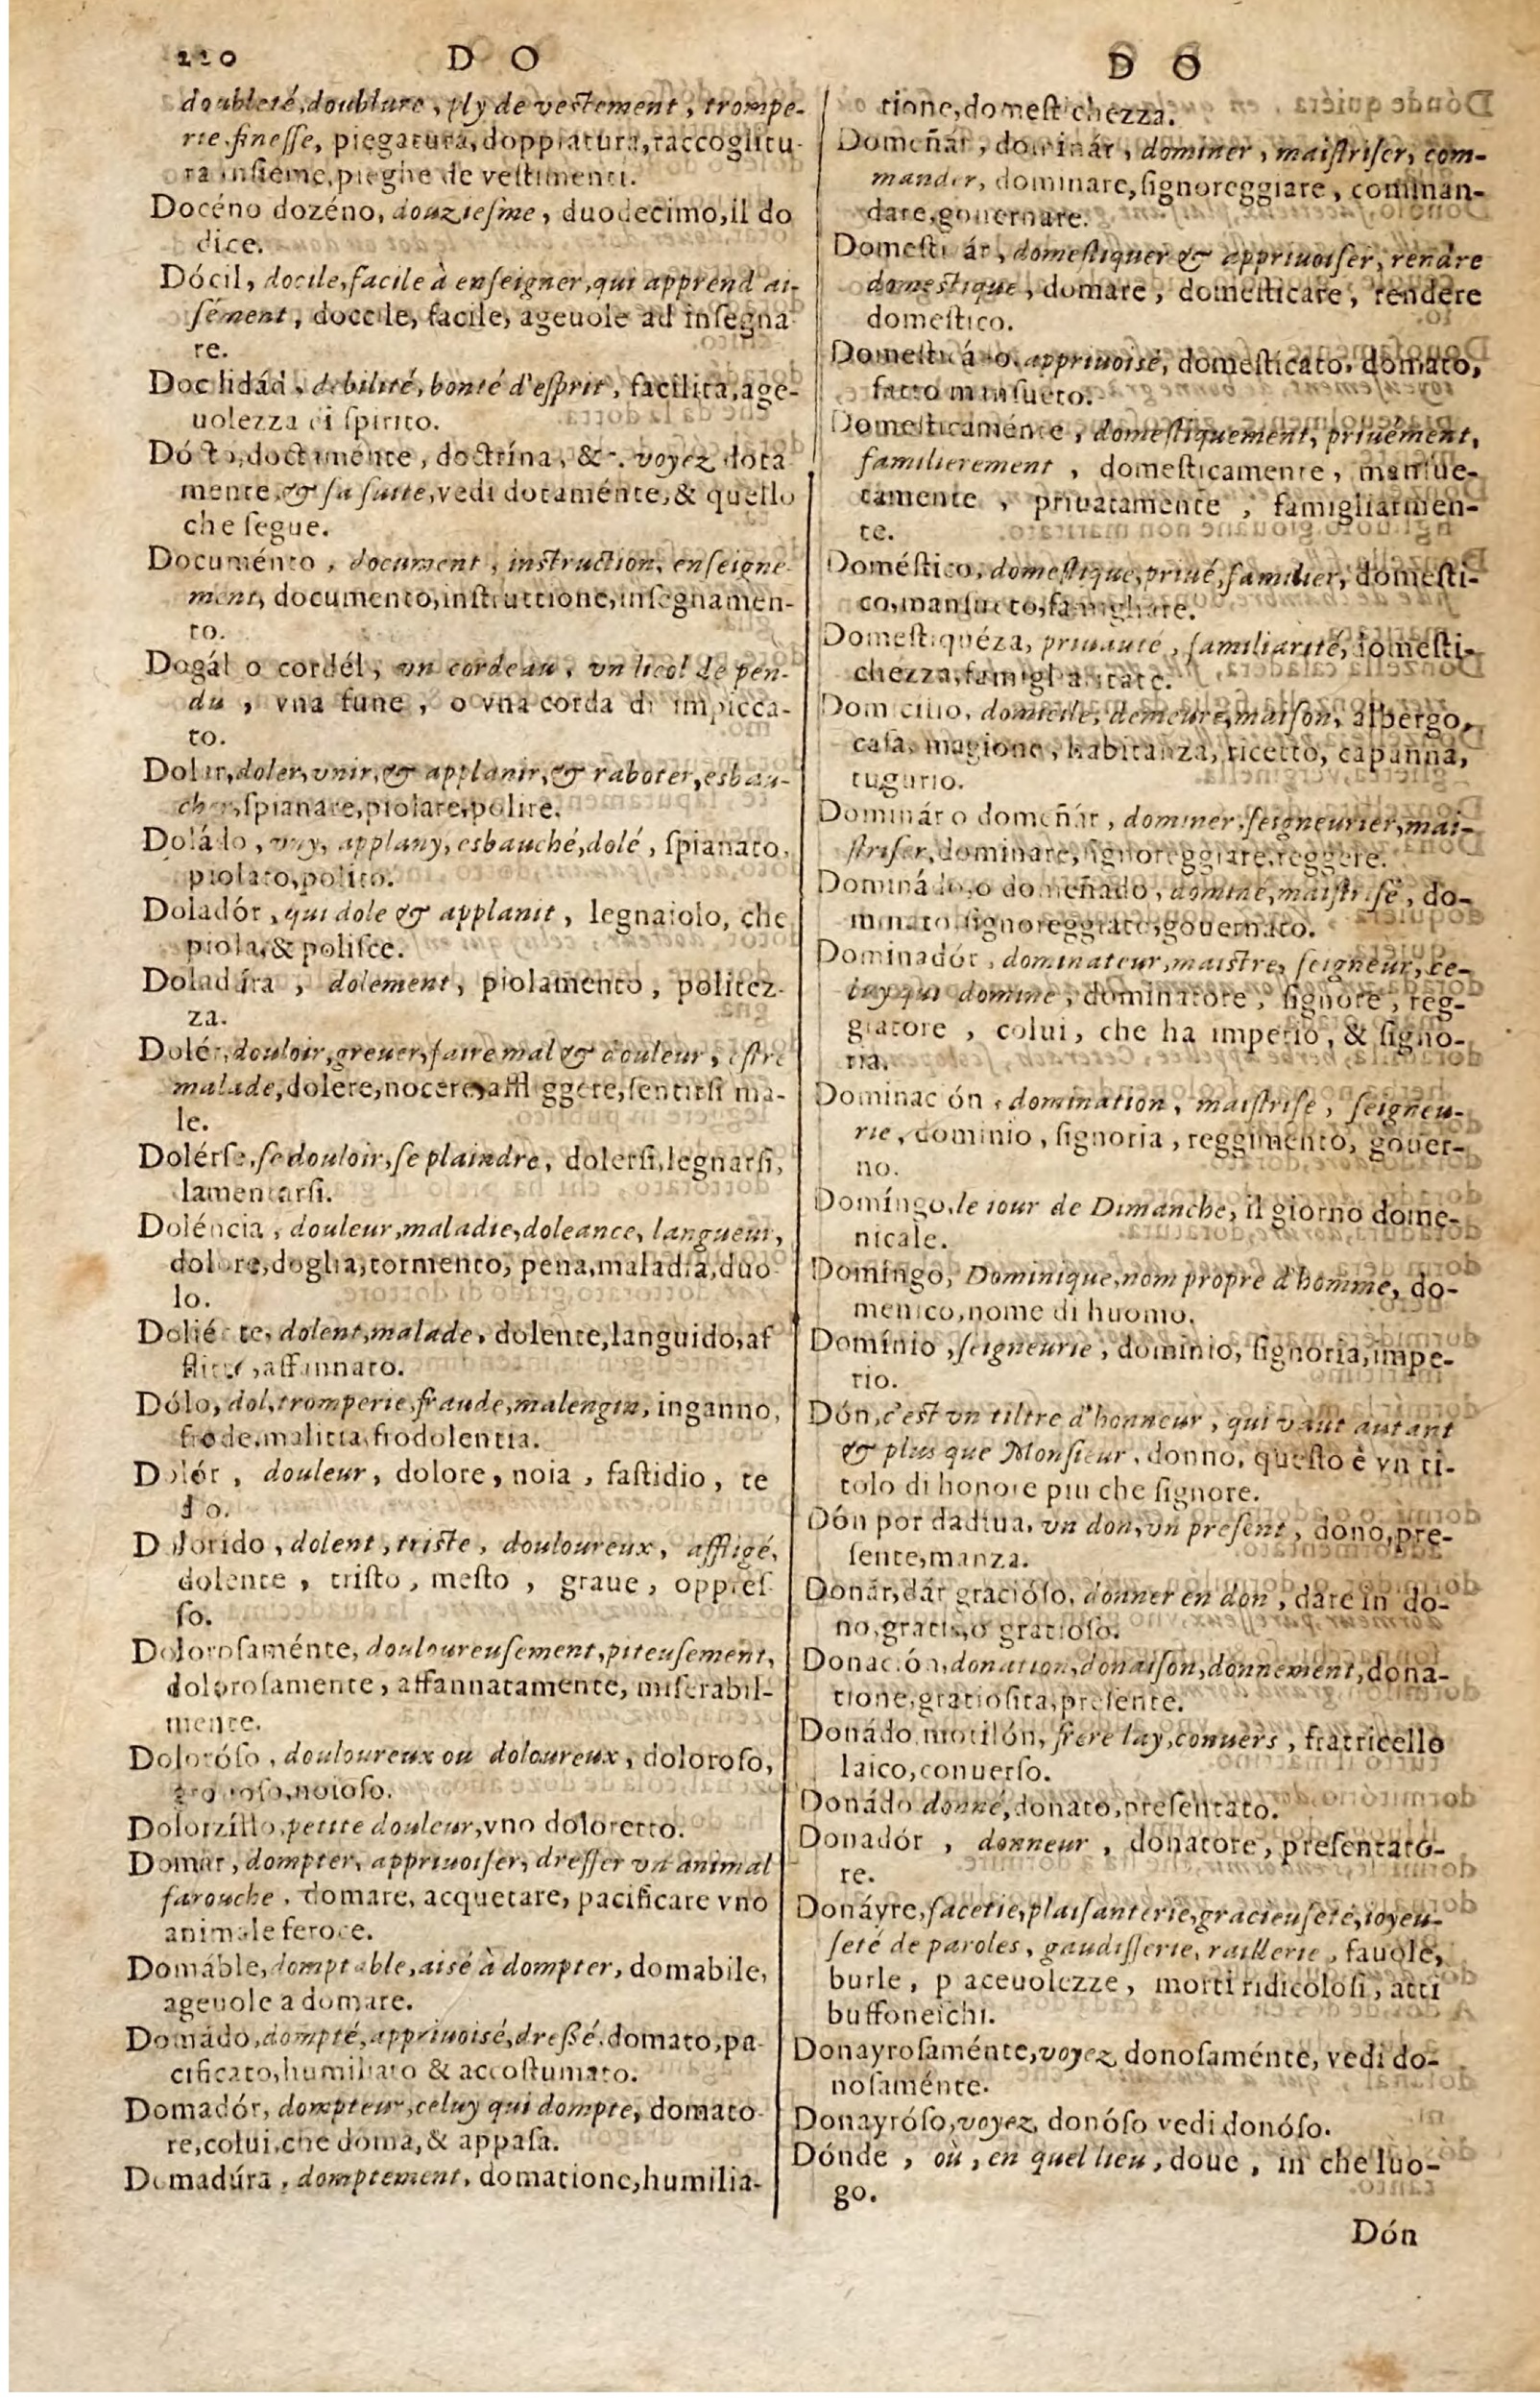 220 D O
doubleté, doublure, ply de vestement, trompe-
rie, finesse, piegatura, doppiatura, raccoglitu-
ra insieme, pieghe de vestimenti.
Docéno dozéno, douziesme, duodecimo, il do
dice.
Dócil, docile, facile à enseigner, qui apprend ai-
sément, doccile, facile, ageuole ad insegna
re.
Docilidád, debilité, bonté d'esprit, facilita, age-
uolezza di spirito.
Dócto, doctaménte, doctrína, &c. voyez dota
mente, & sa suitte, vedi dotaménte, & quello
che segue.
Documénto, document, instruction, enseigne
ment, documento, instruttione, insegnamen-
to.
Dogál o cordél, vn cordeau, vn licol de pen-
du, vna fune, o vna corda di impicca-
to.
Dolar, doler, vnir, & applanir, & raboter, esbau-
cher, spianare, piolare, polire.
Doládo, vny, applany, esbauché, dolé, spianato,
piolato, polito.
Doladór, qui dole & applanit, legnaiolo, che
piola, & polisce.
Doladúra, dolement, piolamento, politez-
za.
Dolér, douloir, greuer, faire mal & douleur, estre
malade, dolere, nocere, affliggere, sentirsi ma-
le.
Dolérse, se douloir, se plaindre, dolersi, legnarsi,
lamentarsi.
Doléncia, douleur, maladie, doleance, langueur,
dolore, doglia, tormento, pena, maladia, duo
lo.
Doliénte, dolent, malade, dolente, languido, af
flitto, affannato.
Dólo, dol, tromperie, fraude, malengin, inganno,
frode, malitia, frodolentia.
Dolór, douleur, dolore, noia, fastidio, te
dio.
Dolorido, dolent, triste, douloureux, affligé,
dolente, tristo, mesto, graue, oppres-
so.
Dolorosaménte, douloureusement, piteusement,
dolorosamente, affannatamente, miserabil-
mente.
Doloróso, douloureux ou doloureux, doloroso,
noioso.
Dolorzíllo, petite douleur, vno doloretto.
Domar, dompter, appriuoiser, dresser vn animal
farouche, domare, acquetare, pacificare vno
animale feroce.
Domáble, domptable, aisé à dompter, domabile,
ageuole a domare.
Domádo, dompté, appriuoisé, dressé, domato, pa-
cificato, humiliato & accostumato.
Domadór, dompteur, celuy qui dompte, domato-
re, colui, che doma, & appasa.
Domadúra, domptement, domatione, humilia-
D O
tione, domestichezza.
Domeñár, dominár, dominer, maistriser, com-
mander, dominare, signoreggiare, comman-
dare, gouernare.
Domesticár, domestiquer & appriuoiser, rendre
domestique, domare, domesticare, rendere
domestico.
Domesticádo, appriuoisé, domesticato, domato,
fatto mansueto.
Domesticaménte, domestiquement, priuément,
familierement, domesticamente, mansue-
tamente, priuatamente, famigliarmen-
te.
Doméstico, domestique, priué, familier, domesti-
co, mansueto, famigliare.
Domestiquéza, priuauté, familiarité, domesti-
chezza, famigliaritate.
Domicilio, domicile, demeure, maison, albergo,
casa, magione, habitanza, ricetto, capanna,
tugurio.
Dominár o domeñár, dominer, seigneurier, mai-
striser, dominare, signoreggiare, reggere.
Dominádo, o domeñado, dominé, maistrisé, do-
minato, signoreggiato, gouernato.
Dominadór, dominateur, maistre, seigneur, ce-
luy qui domine, dominatore, signore, reg-
giatore, colui, che ha imperio, & signo-
ria.
Dominación, domination, maistrise, seigneu-
rie, dominio, signoria, reggimento, gouer-
no.
Domíngo, le iour de Dimanche, il giorno dome-
nicale.
Domíngo, Dominique, nom propre d'homme, do-
menico, nome di huomo.
Domínio, seigneurie, dominio, signoria, impe-
rio.
Dón, c'est vn tiltre d'honneur, qui vaut autant
& plus que Monsieur, donno, questo è vn ti-
tolo di honore piu che signore.
Dón por dadiua, vn don, vn present, dono, pre-
sente, manza.
Donár, dár gracióso, donner en don, dare in do-
no, gratis, o gratioso.
Donación, donation, donaison, donnement, dona-
tione, gratiosita, presente.
Donádo motilón, frere lay, conuers, fratricello
laico, conuerso.
Donádo donné, donato, presentato.
Donadór, donneur, donatore, presentato-
re.
Donáyre, facetie, plaisanterie, gracieuseté, ioyeu-
seté de paroles, gaudisserie, raillerie, fauole,
burle, piaceuolezze, motti ridicolosi, atti
buffoneschi.
Donayrosaménte, voyez donosaménte, vedi do-
nosaménte.
Donayróso, voyez, donóso vedi donóso.
Dónde, où, en quel lieu, doue, in che luo-
go.
Dón